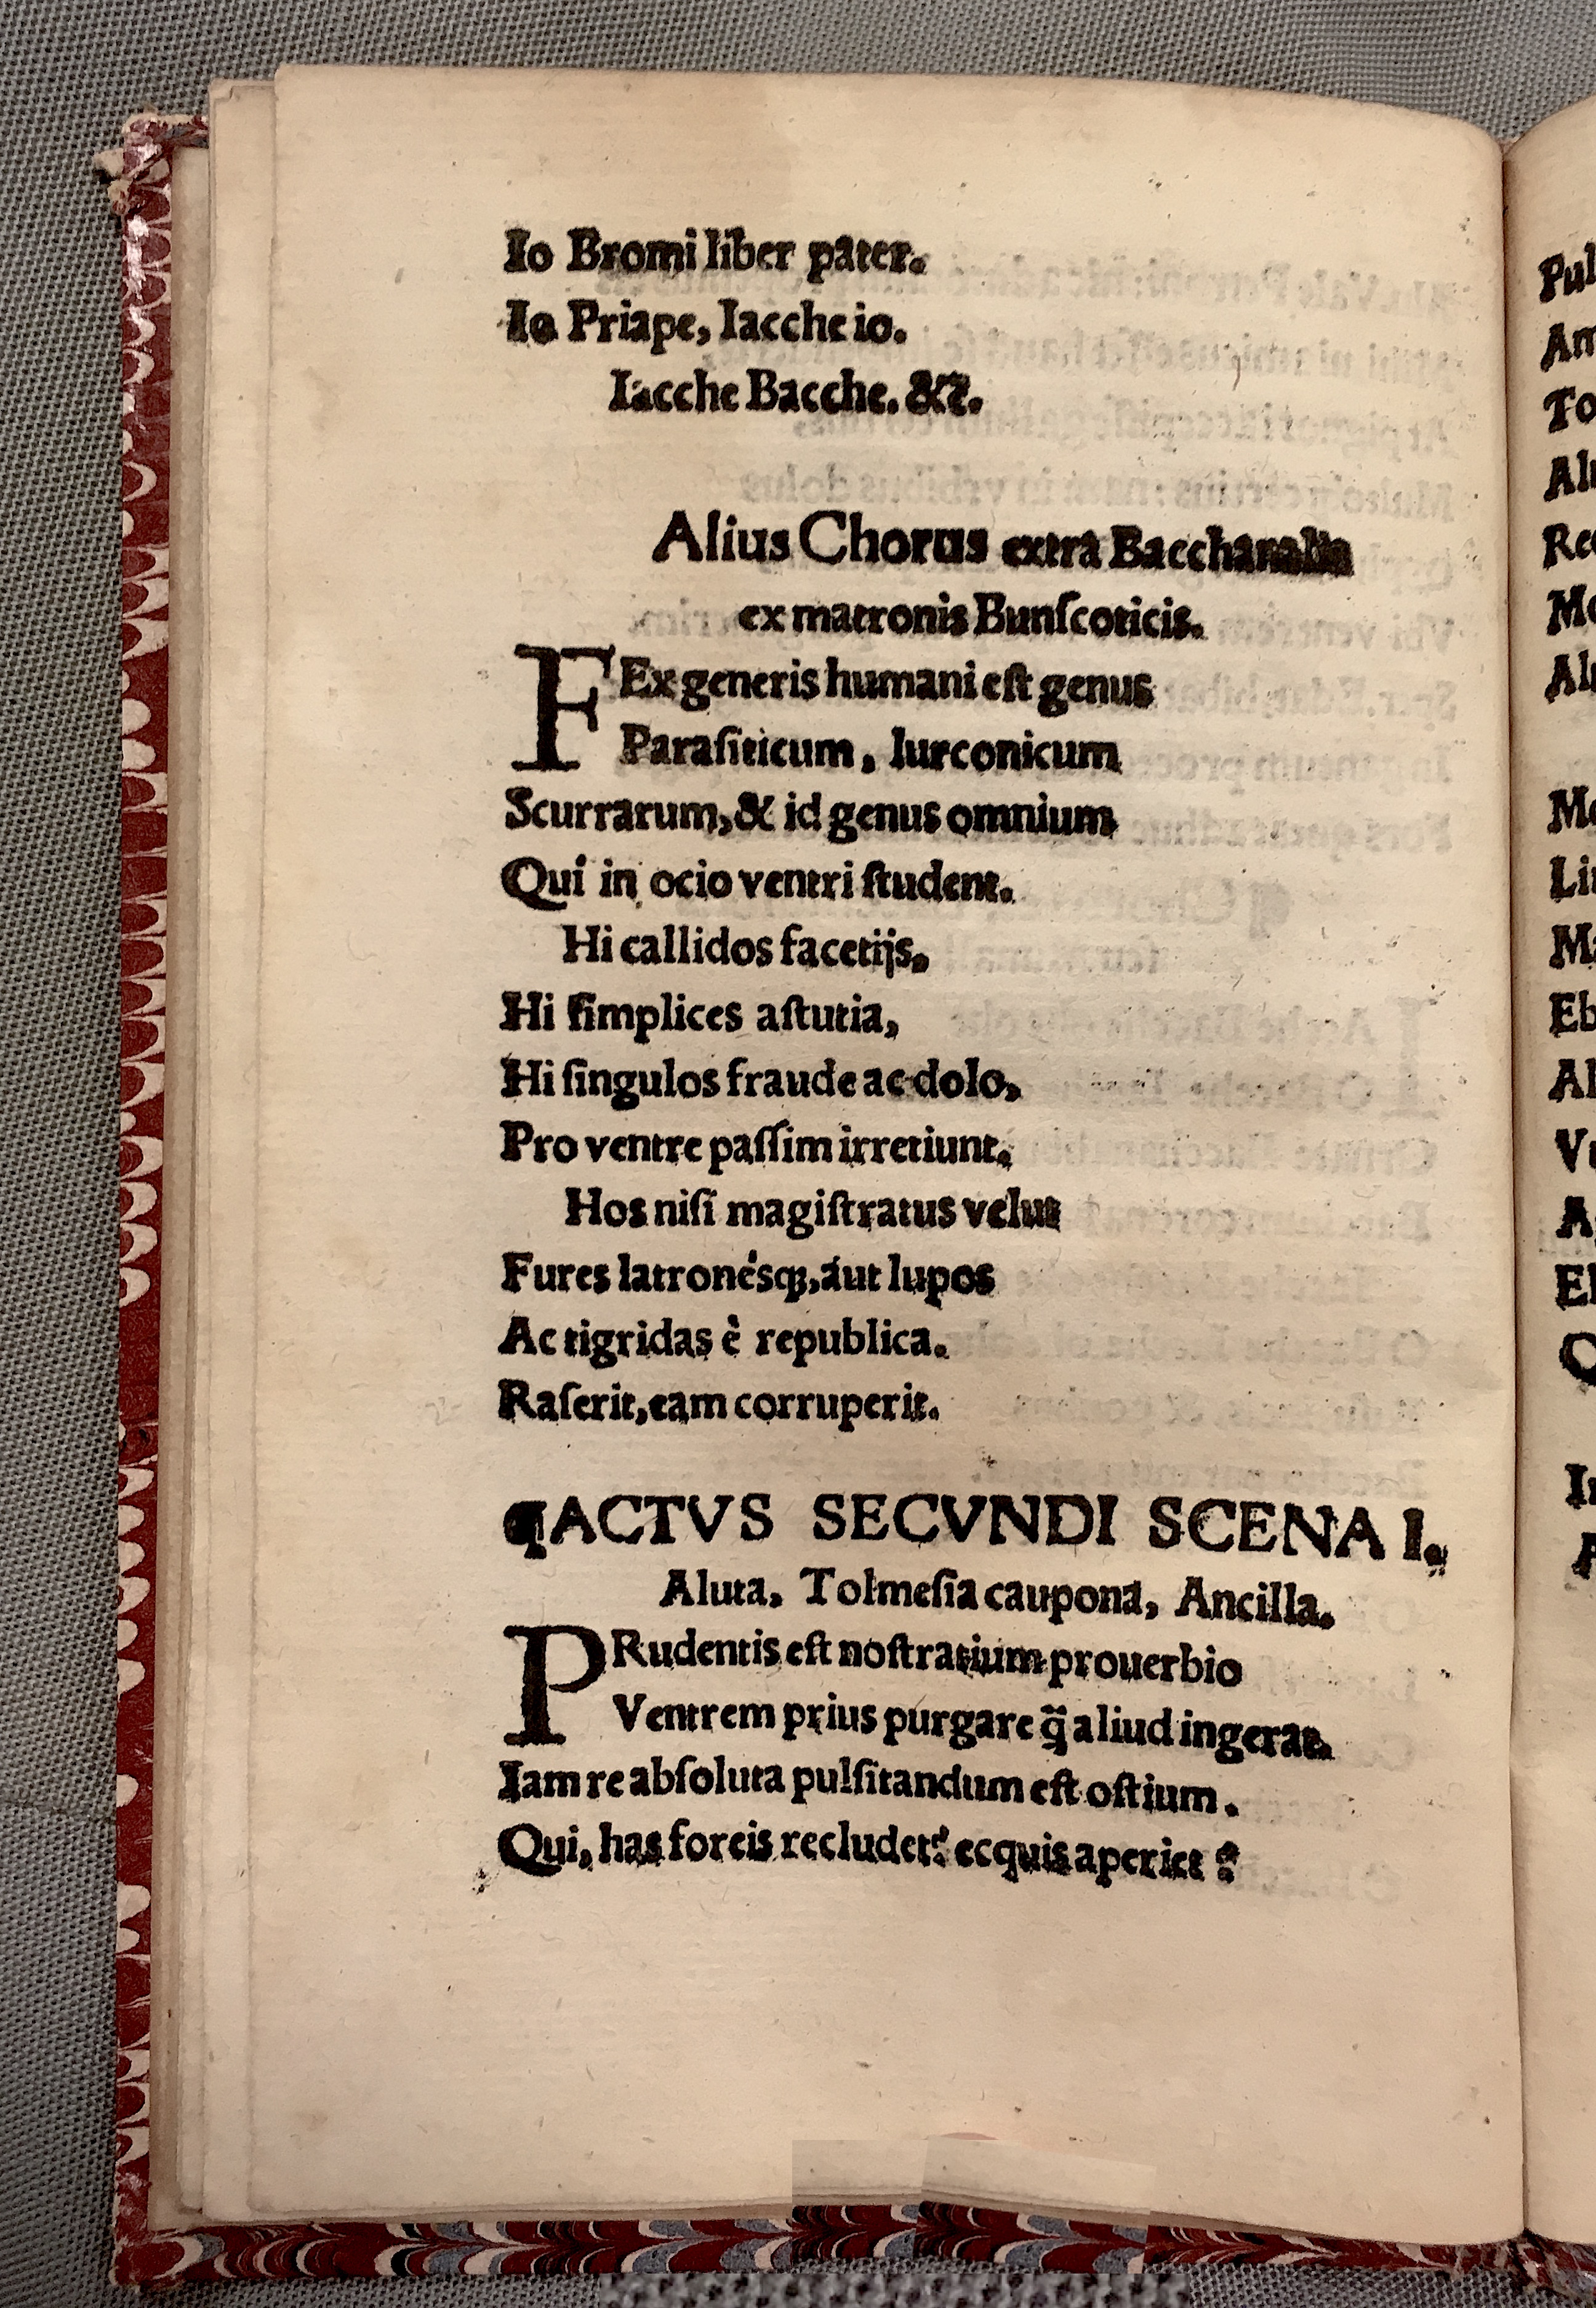 Io Bromi liber pater.
Io Priape, Iacche io.
Iacche Bacche. &c.
Alius Chorus extra Bacchanalia
ex matronis Bunſcoticis.
FEx generis humani eſt genus
Paraſiticum, lurconicum
Scurrarum, & id genus omnium
Qui in ocio ventri ſtudent.
Hi callidos facetijs,
Hi ſimplices aſtutia,
Hi ſingulos fraude ac dolo,
Pro ventre paſſim irretiunt.
Hos niſi magiſtratus velut
Fures latronésq;, áut lupos
Ac tigridas è republica.
Raſerit, eam corruperit.
¶ACTVS SECVNDI SCENA I.
Aluta, Tolmeſia caupona, Ancilla.
PRudentis eſt noſtratium prouerbio
Ventrem prius purgare q̃ aliud ingerat.
Iam re abſoluta pulſitandum eſt oſtium.
Qui, has foreis recludet? ecquis aperiet?
Pul
Am
To
Alu
Rec
Me
Alu
Me
Lin
Ma
Eb
Al
Vt
A
El
In